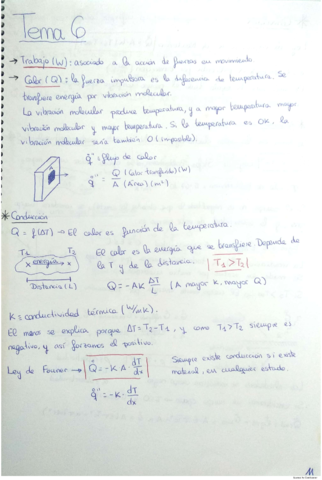 Tema 6
→ Trabajo (W): asociado a la acción de fuerzas en movimiento
→ Calor (Q): la fuerza impulsora es la diferencia de temperatura. Se
transfiere energía por vibración molecular.
La vibración molecular produce temperatura, y a mayor temperatura mayor
vibración molecular y mayor temperatura. Si la temperatura es 0K, la
vibración molecular sería también 0 (imposible).
q̇": flujo de calor
q̇" = Q (Calor transferido) (W) / A (Área) (m²)
* Conducción
Q = f(ΔT) → El calor es función de la temperatura.
T₁ T₂ El calor es la energía que se transfiere. Depende de
x energía → x la T y de la distancia. T₁ > T₂
Distancia (L) Q = -AK ΔT/L (A mayor K, mayor Q)
K = conductividad térmica (W/mK).
El menos se explica porque ΔT = T₂-T₁, y como T₁>T₂ siempre es
negativa, y así forzamos el positivo.
Ley de Fourier → Q̇ = -K·A dT/dx Siempre existe conducción si existe
material, en cualquier estado.
q̇" = -K· dT/dx